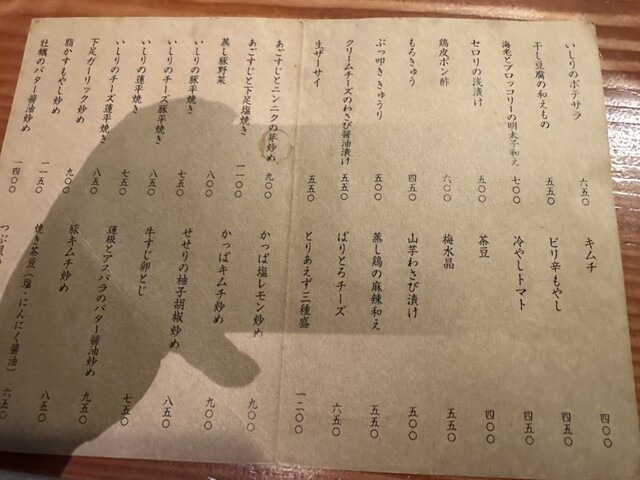 いしりのポテサラ 六五〇
干し豆腐の和えもの 五五〇
海老とブロッコリーの明太子和え 七〇〇
セロリの浅漬け 五〇〇
鶏皮ポン酢 六〇〇
もろきゅう 四五〇
ぶっ叩ききゅうり 五〇〇
クリームチーズのわさび醤油漬け 五五〇
生ザーサイ 五五〇
あごすじとニンニクの芽炒め 九〇〇
あごすじと下足塩焼き 一一〇〇
蒸し豚野菜 八〇〇
いしりの豚平焼き 七五〇
いしりのチーズ豚平焼き 八五〇
いしりの蓮平焼き 七五〇
いしりのチーズ蓮平焼き 八五〇
下足ガーリック炒め 八五〇
脂かすもやし炒め 九〇〇
牡蠣のバター醤油炒め 一一五〇
一四〇〇
キムチ 四〇〇
ピリ辛もやし 四五〇
冷やしトマト 四五〇
茶豆 四〇〇
梅水晶 五五〇
山芋わさび漬け 五〇〇
蒸し鶏の麻辣和え 五五〇
ぱりとろチーズ 六五〇
とりあえず三種盛 一二〇〇
かっぱ塩レモン炒め 九〇〇
かっぱキムチ炒め 九〇〇
せせりの柚子胡椒炒め 八五〇
牛すじ卵とじ 七五〇
蓮根とアスパラのバター醤油炒め 九五〇
豚キムチ炒め 八五〇
焼き茶豆(塩・にんにく醤油) 六五〇
つぶ貝